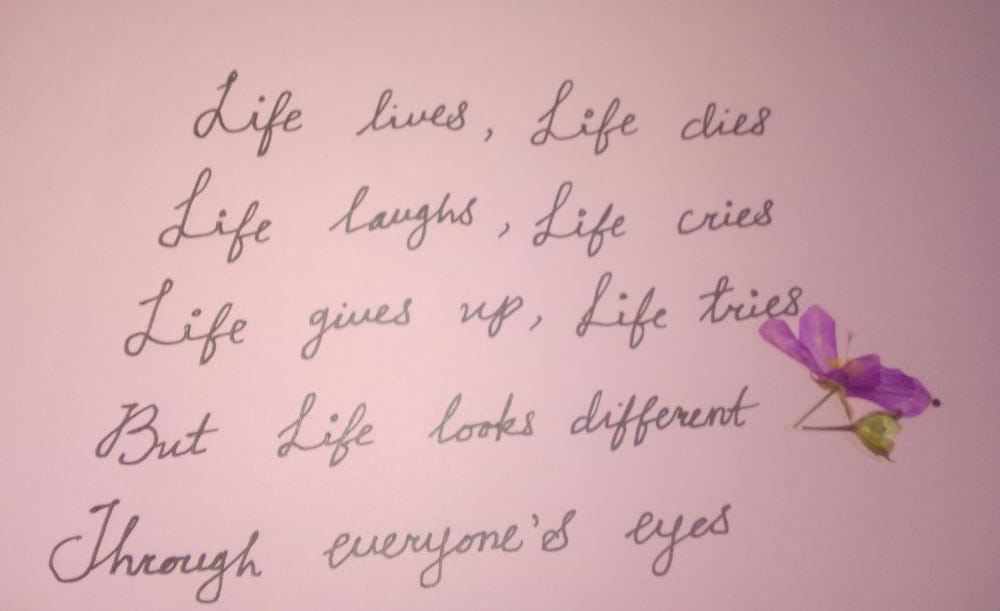 Life lives, Life dies
Life laughs, Life cries
Life gives up, Life tries
But Life looks different
Through everyone's eyes